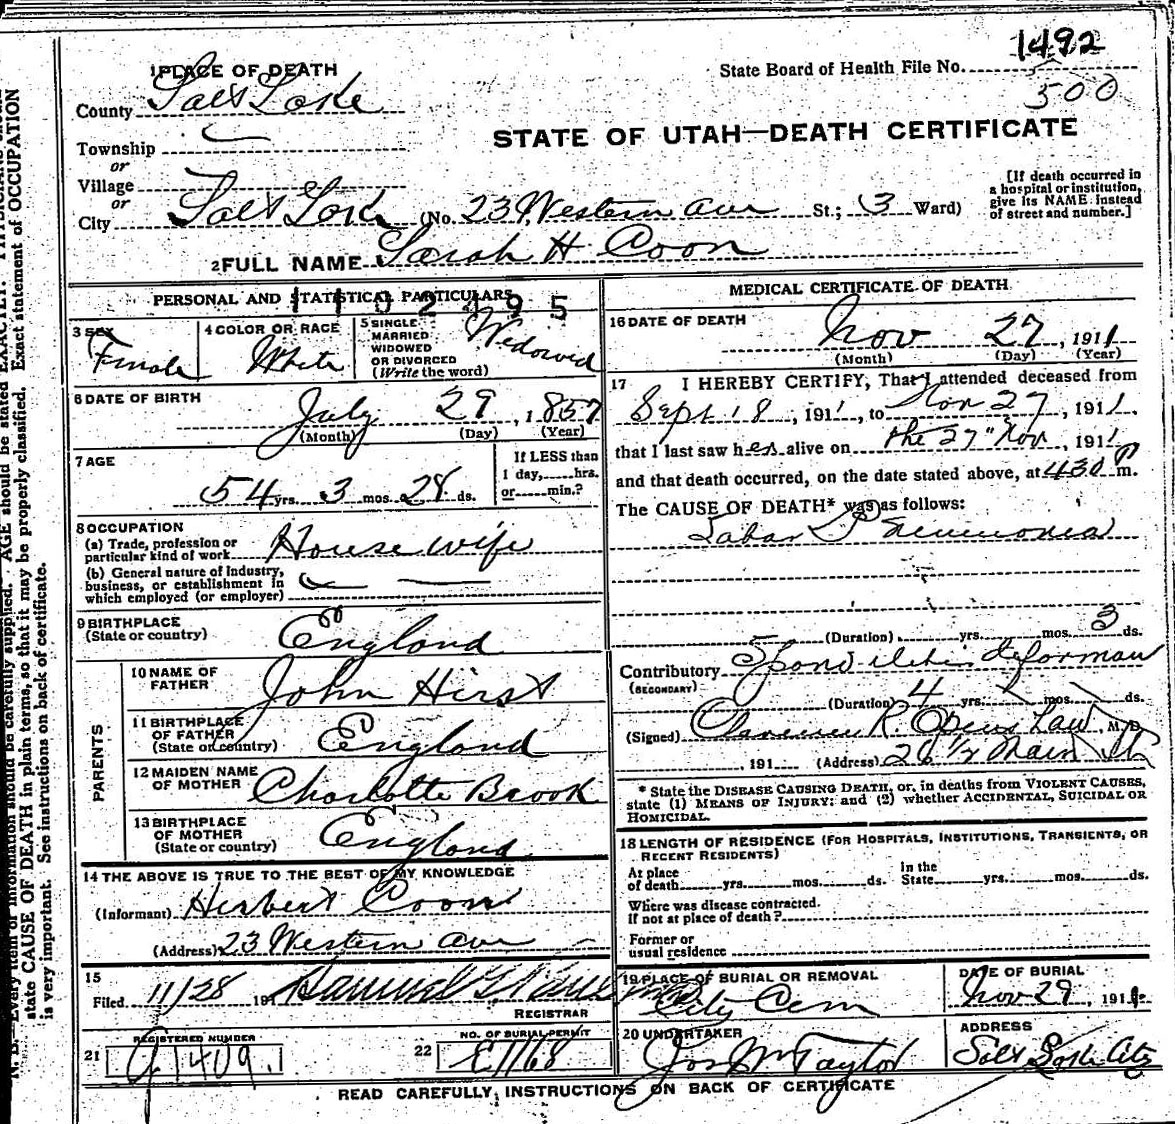 1492
State Board of Health File No.
500
1 PLACE OF DEATH
County Salt Lake
STATE OF UTAH—DEATH CERTIFICATE
Township
or
Village
or
City Salt Lake (No. 23 Western Ave St.; 3 Ward)
[If death occurred in
a hospital or institution,
give its NAME instead
of street and number.]
2 FULL NAME Sarah H Coon
PERSONAL AND STATISTICAL PARTICULARS
1102495
3 SEX
Female
4 COLOR OR RACE
White
5 SINGLE
MARRIED
WIDOWED
OR DIVORCED
(Write the word)
Widowed
6 DATE OF BIRTH
July 29, 1857
(Month) (Day) (Year)
7 AGE
54 yrs. 3 mos. 28 ds.
If LESS than
1 day, hrs.
or min.?
8 OCCUPATION
(a) Trade, profession or
particular kind of work House wife
(b) General nature of Industry,
business, or establishment in
which employed (or employer)
9 BIRTHPLACE
(State or country)
England
PARENTS
10 NAME OF
FATHER
John Hirst
11 BIRTHPLACE
OF FATHER
(State or country)
England
12 MAIDEN NAME
OF MOTHER
Charlotte Brook
13 BIRTHPLACE
OF MOTHER
(State or country)
England
14 THE ABOVE IS TRUE TO THE BEST OF MY KNOWLEDGE
(Informant) Herbert Coon
(Address) 23 Western Ave
15
Filed 11/28 191
REGISTRAR
REGISTERED NUMBER
21
1409.
NO. OF BURIAL PERMIT
22
E1168
MEDICAL CERTIFICATE OF DEATH
16 DATE OF DEATH
Nov 27, 1911
(Month) (Day) (Year)
17 I HEREBY CERTIFY, That I attended deceased from
Sept 18, 1911, to Nov 27, 1911.
that I last saw her alive on the 27" Nov, 1911
and that death occurred, on the date stated above, at 430 P m.
The CAUSE OF DEATH* was as follows:
Labar Pneumonia
(Duration) yrs. mos. 3 ds.
Contributory Spondilitis deforman
(SECONDARY)
(Duration) 4 yrs. mos. ds.
(Signed) Clarence R. M.D.
191 (Address) Main St
* State the DISEASE CAUSING DEATH, or, in deaths from VIOLENT CAUSES,
state (1) MEANS OF INJURY; and (2) whether ACCIDENTAL, SUICIDAL OR
HOMICIDAL.
18 LENGTH OF RESIDENCE (FOR HOSPITALS, INSTITUTIONS, TRANSIENTS, OR
RECENT RESIDENTS)
At place
of death yrs. mos. ds.
In the
State yrs. mos. ds.
Where was disease contracted.
If not at place of death?
Former or
usual residence
19 PLACE OF BURIAL OR REMOVAL
City Cem
DATE OF BURIAL
Nov 29 1911
20 UNDERTAKER
Jos Wm Taylor
ADDRESS
Salt Lake City
READ CAREFULLY INSTRUCTIONS ON BACK OF CERTIFICATE
N. B.—Every item of information should be carefully supplied. AGE should be stated EXACTLY. PHYSICIANS should
state CAUSE OF DEATH in plain terms, so that it may be properly classified. Exact statement of OCCUPATION
is very important. See instructions on back of certificate.